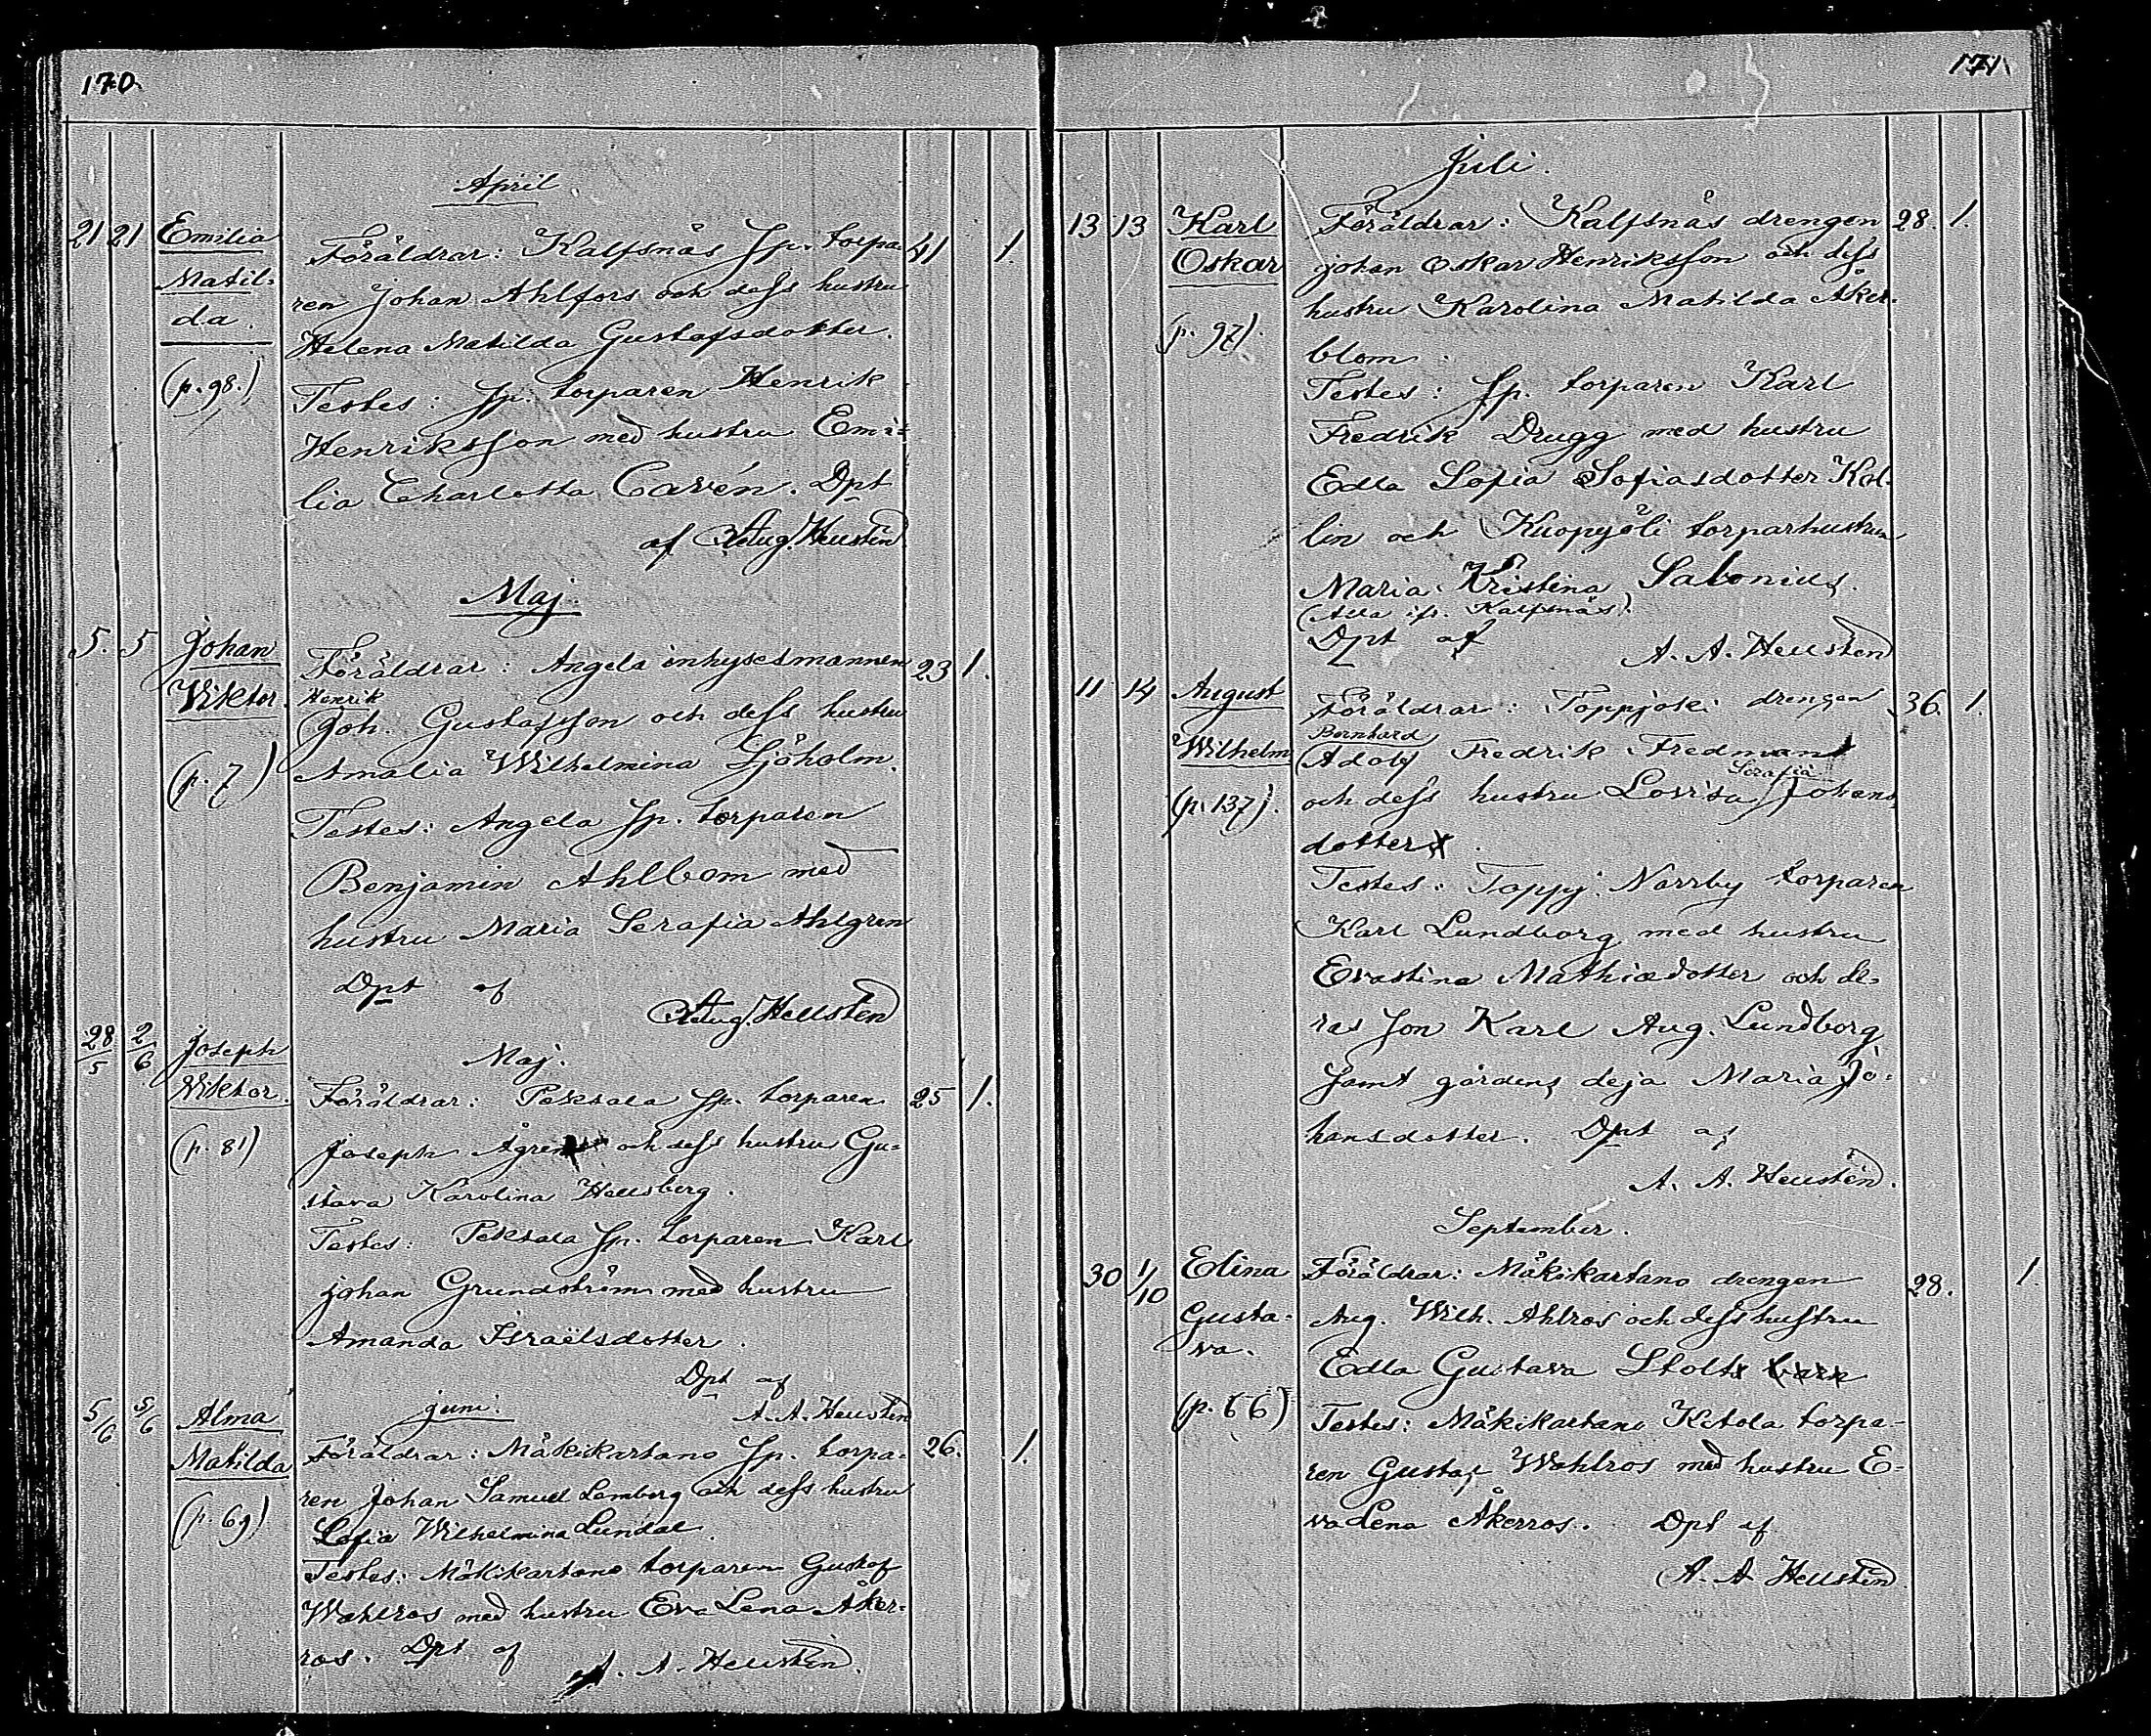 170
April
21 21 Emilia Föräldrar: Kalfsnäs Sp. torpa- 41 1.
Matil-
ren Johan Ahlfors och dess hustru
da.
Helena Matilda Gustafsdotter.
(p. 98.)
Testes: Sp. torparen Henrik
Henriksson med hustru Emi-
lia Charlotta Cavén. Dpt
af Aug. Hellstén
Maj.
5. 5 Johan Föräldrar: Angela inhysesmannen 23 1.
Viktor. Henrik
Joh. Gustafsson och dess hustru
(p. 7) Amalia Wilhelmina Sjöholm.
Testes: Angela Sp. torparen
Benjamin Ahlbom med
hustru Maria Serafia Ahlgren
Dpt af
Aug. Hellstén
28/5 2/6 Joseph Maj.
Viktor. Föräldrar: Peksala Sp. torparen 25 1.
(p. 81) Joseph Ågren och dess hustru Gu-
stava Karolina Hellsberg.
Testes: Peksala Sp. torparen Karl
Johan Grundström med hustru
Amanda Israëlsdotter.
Dpt af
5/6 5/6 Alma Juni. A. A. Hellstén
Matilda Föräldrar: Mäkikartano Sp. torpa- 26. 1.
ren Johan Samuel Lemberg och dess hustru
(p. 69) Sofia Wilhelmina Lundal.
Testes: Mäkikartano torparen Gustaf
Wahlros med hustru Eva Lena Åker-
ros. Dpt af A. A. Hellstén.
171
Juli.
13 13 Karl Föräldrar: Kalfsnäs drengen 28. 1.
Oskar Johan Oskar Henriksson och dess
hustru Karolina Matilda Åker-
(p. 97). blom.
Testes: Sp. torparen Karl
Fredrik Drugg med hustru
Edla Sofia Sofiasdotter Kol-
lin och Kuopyöli torparhustrun
Maria Kristina Salonius.
(Alla fr. Kalfsnäs).
Dpt af A. A. Hellstén
11 14 August Föräldrar: Toppjoki drengen 36. 1.
Bernhard
Wilhelm Adolf Fredrik Fredman
Serafia
(p. 137). och dess hustru Lovisa Johans-
dotter.
Testes: Toppj. Norrby torparen
Karl Lundborg med hustru
Evastina Mathiædotter och de-
ras son Karl Aug. Lundborg
samt gårdens deja Maria Jo-
hansdotter. Dpt af
A. A. Hellstén.
September.
30 1/10 Edina Föräldrar: Mäkikartano drengen 28. 1.
Gusta- Aug. Wilh. Ahlros och dess hustru
va. Edla Gustava Stolt
(p. 66) Testes: Mäkikartano Ketola torpa-
ren Gustaf Wahlros med hustru E-
va Lena Åkerros. Dpt af
A. A Hellstén